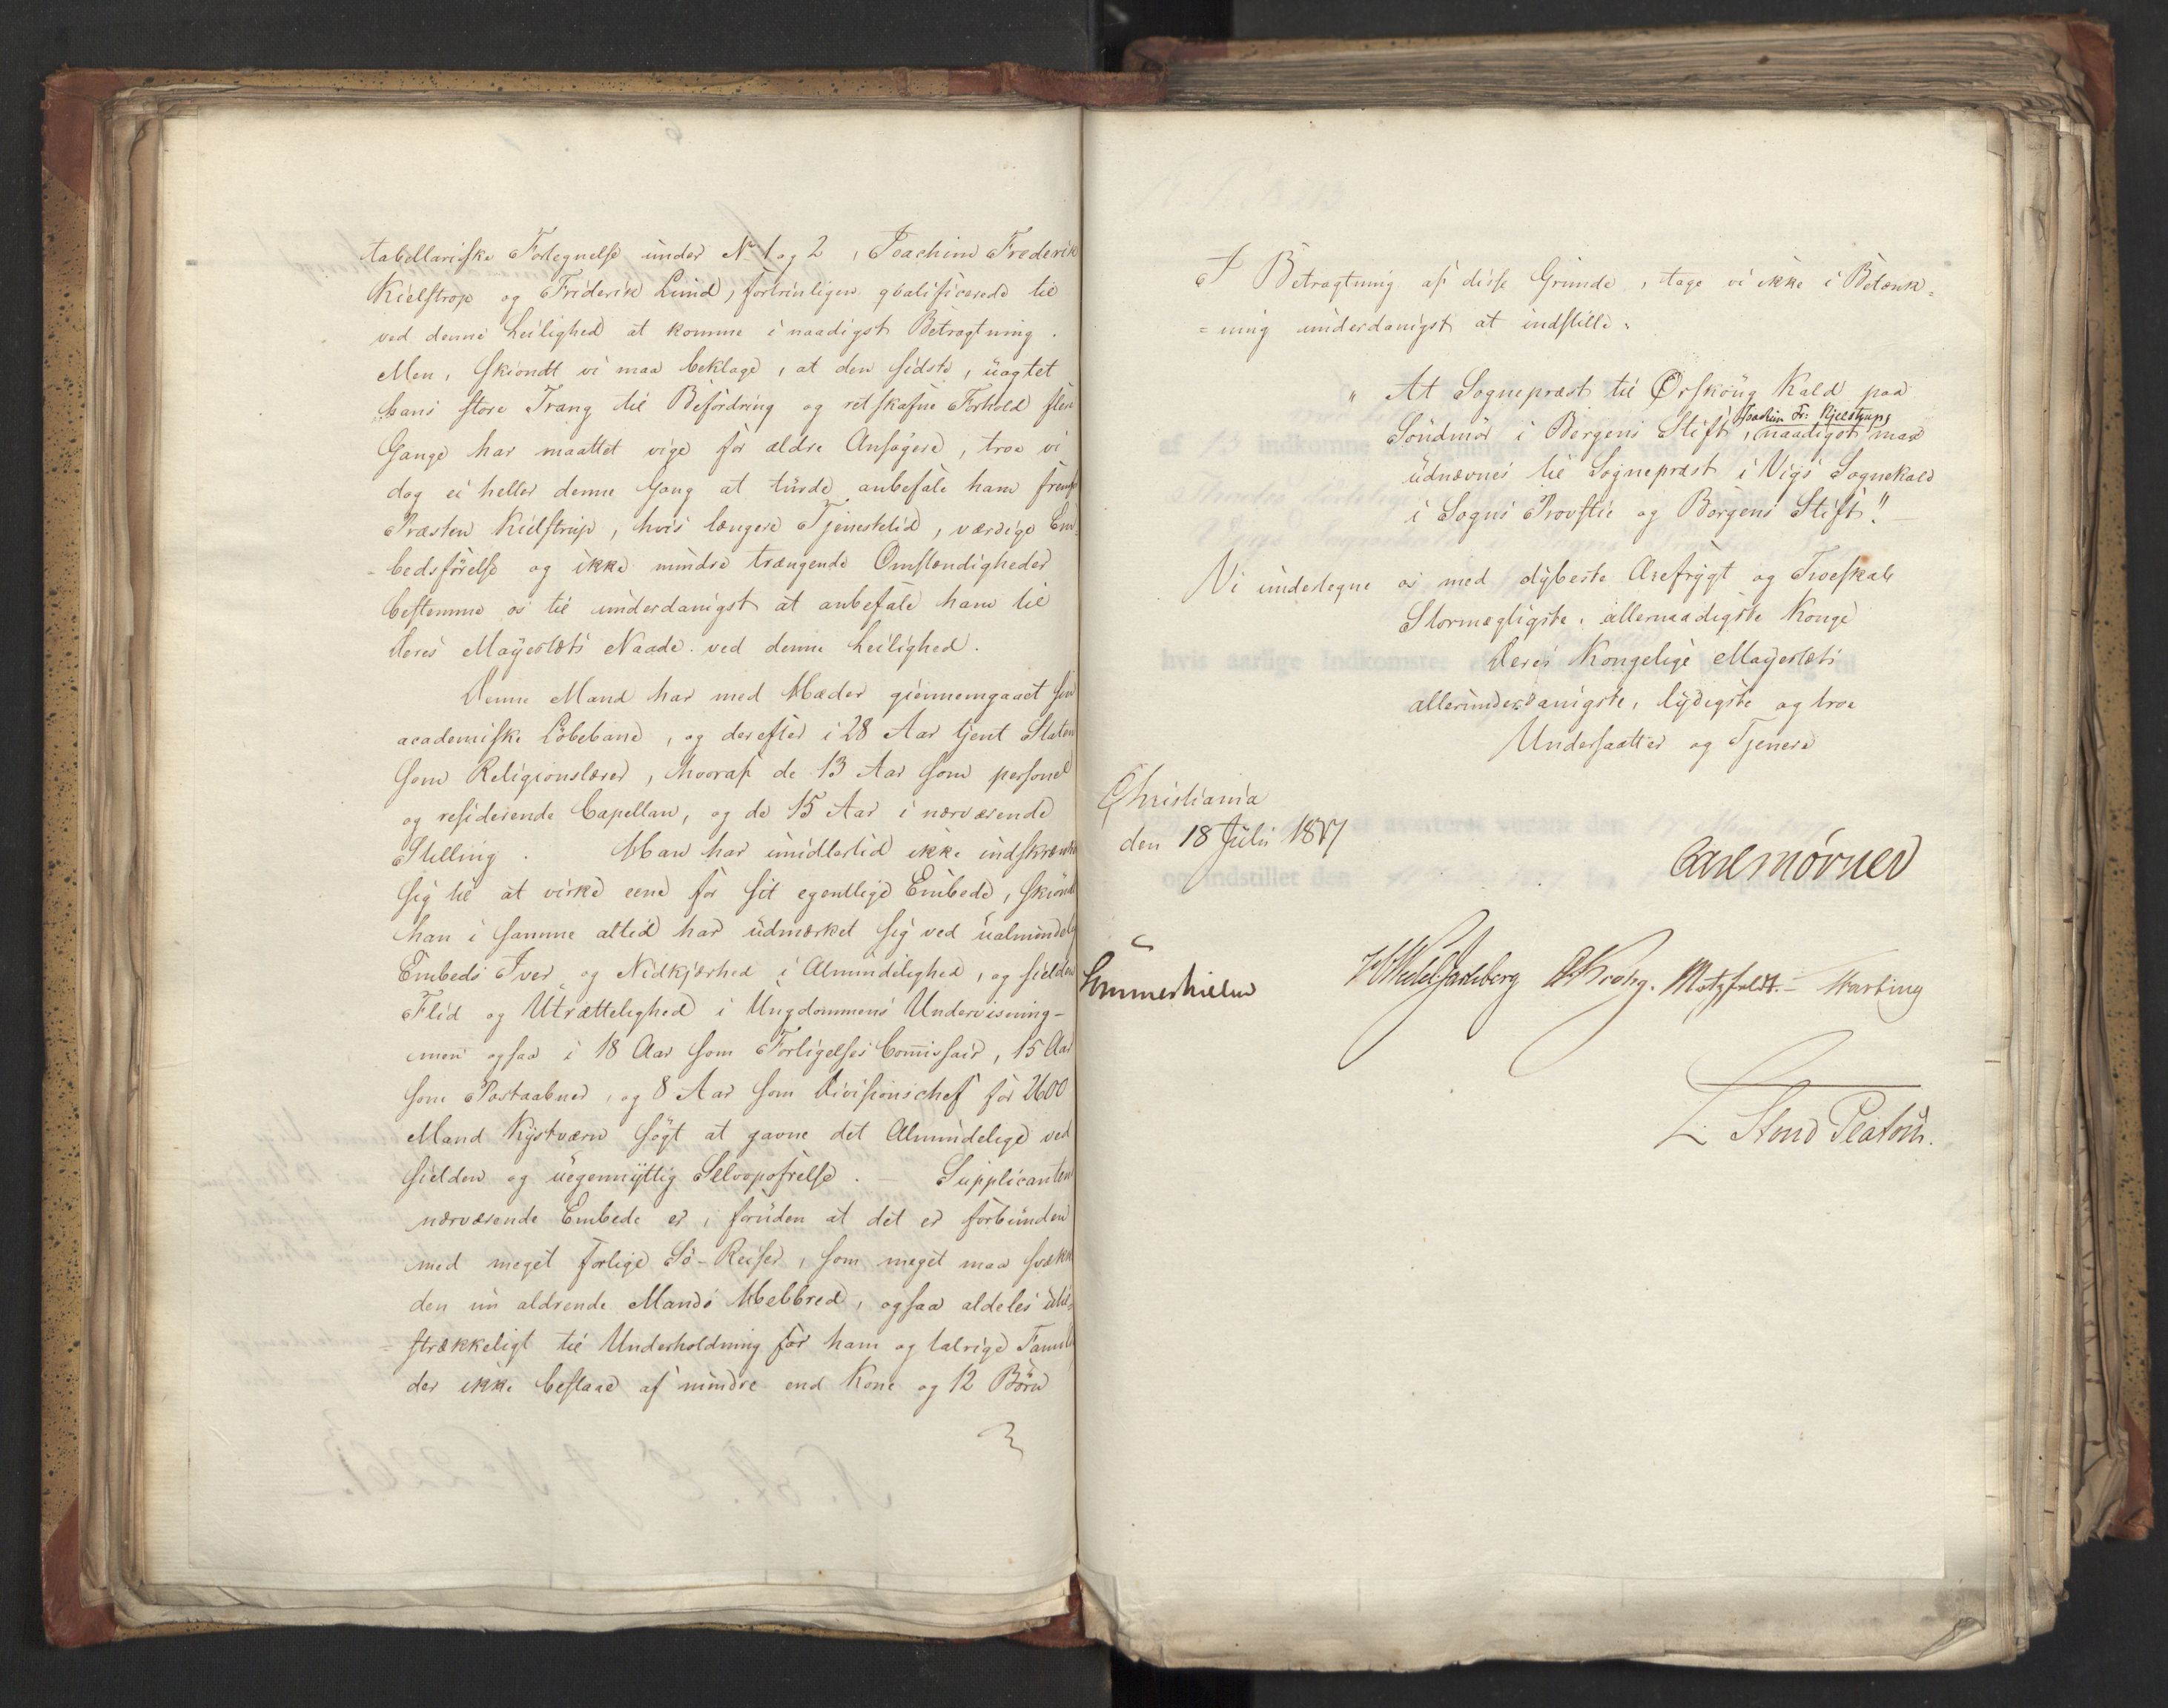 tabellariske Fortegnelse under No 1 og 2, Joachim Frederik
Kielstrop og Friderik Lund, fortrinligen qvalificerede til
ved denne Leilighed at komme i naadigst Betragtning.
Men, skiøndt vi maa beklage, at den sidste, uagtet
hans store Trang til Befordring og retskafne Forhold flere
Gange har maattet vige for ældre Ansøgere, troe vi
dog ei heller denne Gang at turde anbefale ham fremf
Præsten Kielstrup, hvis længere Tjenestetid, værdige Em-
-bedsførelse og ikke mindre trængende Omstændigheder
bestemme os til underdanigst at anbefale ham til
Deres Majestæts Naade ved denne Leilighed.
Denne Mand har med Hæder giennemgaaet sin
academiske Løbebane, og derefter i 28 Aar tjent Staten
som Religionslærer, hvoraf de 13 Aar som personel
og residerende Capellan, og de 15 Aar i nærværende
Stilling. Han har imidlertid ikke indskrænke
sig til at virke ene for sit egentlige Embede, skiøndt
han i samme altid har udmærket sig ved ualmindelig
Embeds Iver og Nidkjærhed i Almindelighed, og sielden
Flid og Utrættelighed i Ungdommens Undervisning-
men ogsaa i 18 Aar som Forligelses Com̄issair, 15 Aar
som Postaabner, og 8 Aar som Divisionschef for 2600
Mand Kystværn søgt at gavne det Almindelige ved
sielden og uegennyttig Selvopofrelse. - Supplicanten
nærværende Embede er, foruden at det er forbunden
med meget farlige Sø-Reiser, som meget maa svække
den nu aldrende Mands Helbred, ogsaa aldeles util-
-strækkeligt til Underholdning for ham og talrige Famil
der ikke bestaae af mindre end Kone og 12 Børn
I Betragtning af disse Grunde, tage vi ikke i Betænk-
=ning underdanigst at indstille:
" At Sognepræst til Ørskoug Kald paa
Joachim Fr: Kjelstrup
Søndmør i Bergens Stift, naadigst maa
udnævnes til Sognepræst i Vigs Sognekald
i Sogns Provstie og Bergens Stift."
Vi undertegne os med dybeste Ærefrygt og Troeskab
Stormægtigste, allernaadigste Konge
Deres Kongelige Majestæts
allerunderdanigste, lydigste og troe
Undersaatter og Tjenere
Christiania
den 18 Julii 1817
Carl Mörner
Sommerhielm HWedel Jarlsberg Krohg. Motzfeldt. -
L. Stoud Platou.